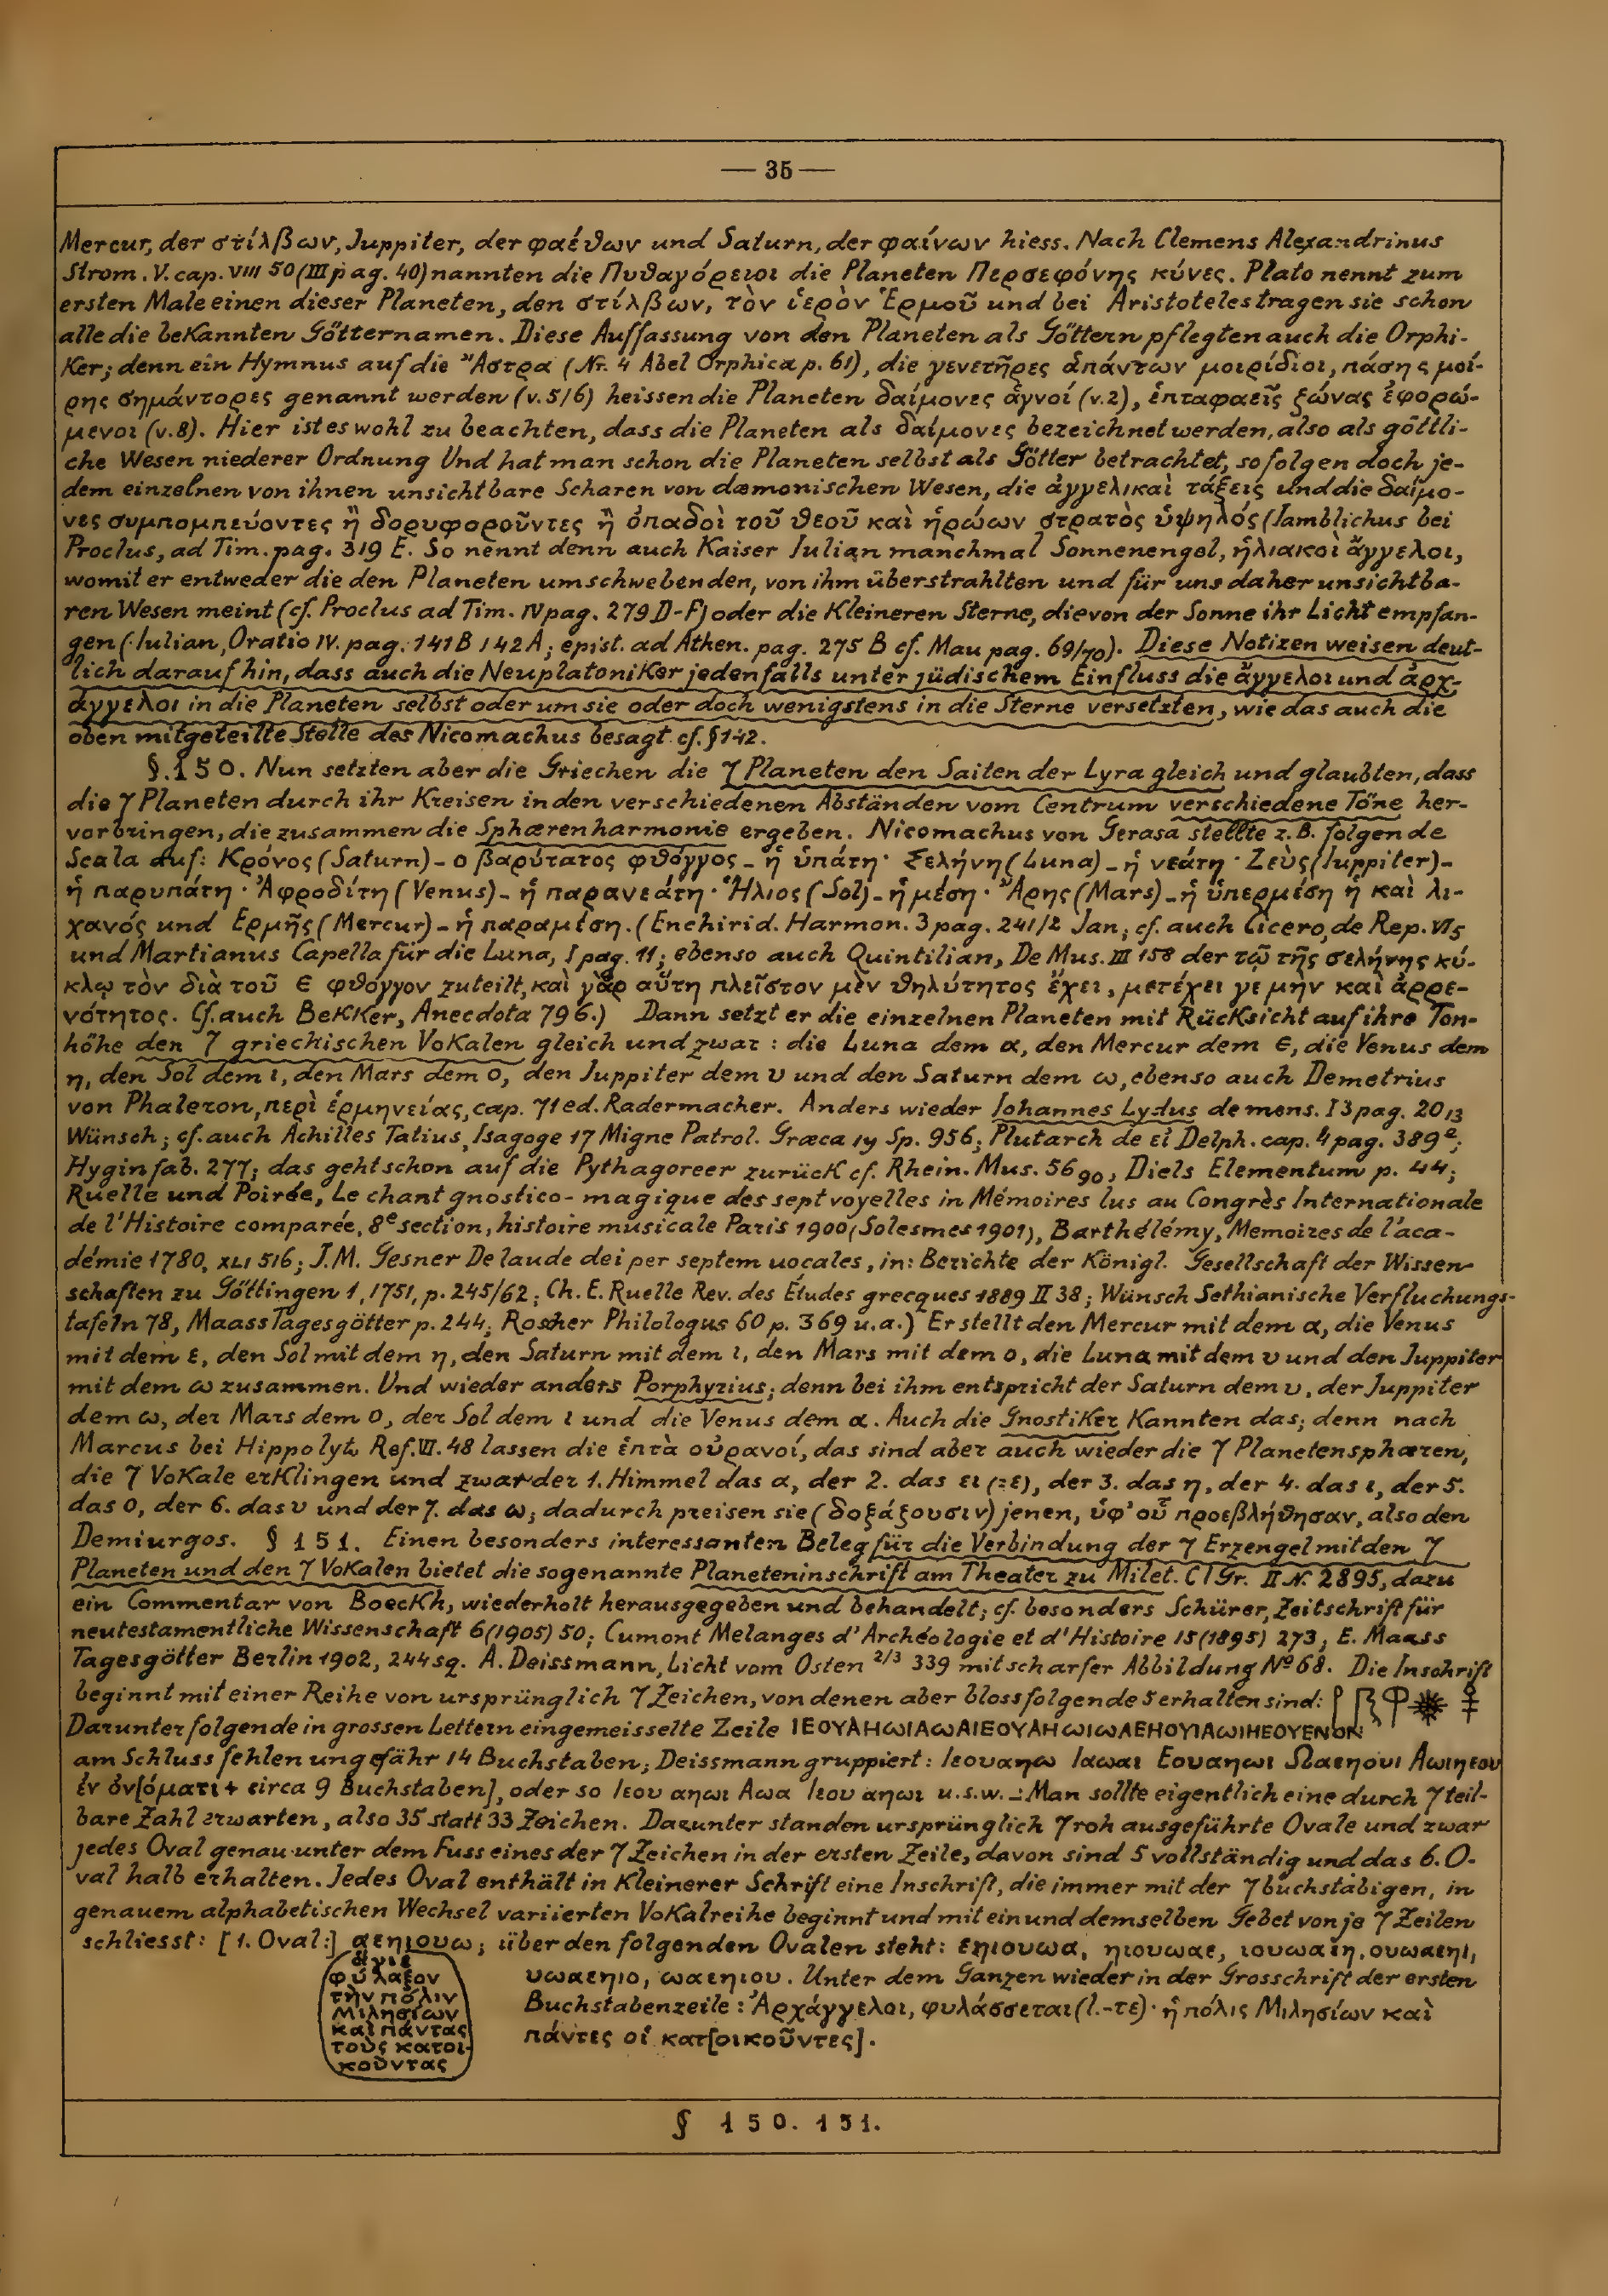 — 35 —
Mercur, der στίλβων, Juppiter, der φαέθων und Saturn, der φαίνων hiess. Nach Clemens Alexandrinus
Strom. V. cap. VIII 50 (III pag. 40) nannten die Πυθαγόρειοι die Planeten Περσεφόνης κύνες. Plato nennt zum
ersten Male einen dieser Planeten, den στίλβων, τὸν ἱερὸν Ἑρμοῦ und bei Aristoteles tragen sie schon
alle die bekannten Götternamen. Diese Auffassung von den Planeten als Göttern pflegten auch die Orphi-
ker; denn ein Hymnus auf die Ἄστρα (Nr. 4 Abel Orphica p. 61), die γενετῆρες ἁπάντων μοιρίδιοι, πάσης μοί-
ρης σημάντορες genannt werden (v. 5/6) heissen die Planeten δαίμονες ἁγνοί (v. 2), ἑπταφαεῖς ζώνας ἐφορώ-
μενοι (v. 8). Hier ist es wohl zu beachten, dass die Planeten als δαίμονες bezeichnet werden, also als göttli-
che Wesen niederer Ordnung Und hat man schon die Planeten selbst als Götter betrachtet, so folgen doch je-
dem einzelnen von ihnen unsichtbare Scharen von dæmonischen Wesen, die ἀγγελικαὶ τάξεις und die δαίμο-
νες συμπομπεύοντες ἢ δορυφοροῦντες ἢ ὀπαδοὶ τοῦ θεοῦ καὶ ἡρώων στρατὸς ὑψηλός (Iamblichus bei
Proclus, ad Tim. pag. 319 E. So nennt denn auch Kaiser Iulian manchmal Sonnenengel, ἡλιακοὶ ἄγγελοι,
womit er entweder die den Planeten umschwebenden, von ihm überstrahlten und für uns daher unsichtba-
ren Wesen meint (cf. Proclus ad Tim. IV pag. 279 D-F) oder die kleineren Sterne, die von der Sonne ihr Licht empfan-
gen (Iulian, Oratio IV. pag. 141 B 142 A; epist. ad Athen. pag. 275 B cf. Mau pag. 69/70). Diese Notizen weisen deut-
lich darauf hin, dass auch die Neuplatoniker jedenfalls unter jüdischem Einfluss die ἄγγελοι und ἀρχ-
άγγελοι in die Planeten selbst oder um sie oder doch wenigstens in die Sterne versetzten, wie das auch die
oben mitgeteilte Stelle des Nicomachus besagt cf. § 142.
§. 150. Nun setzten aber die Griechen die 7 Planeten den Saiten der Lyra gleich und glaubten, dass
die 7 Planeten durch ihr Kreisen in den verschiedenen Abständen vom Centrum verschiedene Töne her-
vorbringen, die zusammen die Sphærenharmonie ergeben. Nicomachus von Gerasa stellte z. B. folgende
Scala auf: Κρόνος (Saturn) – ο βαρύτατος φθόγγος – ἡ ὑπάτη · Σελήνη (Luna) – ἡ νεάτη · Ζεὺς (Iuppiter) –
ἡ παρυπάτη · Ἀφροδίτη (Venus) – ἡ παρανεάτη · Ἥλιος (Sol) – ἡ μέση · Ἄρης (Mars) – ἡ ὑπερμέση ἡ καὶ λι-
χανός und Ἑρμῆς (Mercur) – ἡ παραμέση. (Enchirid. Harmon. 3 pag. 241/2 Jan; cf. auch Cicero, de Rep. VI 5
und Martianus Capella für die Luna, I pag. 11; ebenso auch Quintilian, De Mus. III 158 der τῷ τῆς σελήνης κύ-
κλῳ τὸν διὰ τοῦ Є φθόγγον zuteilt, καὶ γὰρ αὕτη πλεῖστον μὲν θηλύτητος ἔχει, μετέχει γε μὴν καὶ ἀρρε-
νότητος. Cf. auch Bekker, Anecdota 796.) Dann setzt er die einzelnen Planeten mit Rücksicht auf ihre Ton-
höhe den 7 griechischen Vokalen gleich und zwar: die Luna dem α, den Mercur dem є, die Venus dem
η, den Sol dem ι, den Mars dem ο, den Juppiter dem υ und den Saturn dem ω, ebenso auch Demetrius
von Phaleron, περὶ ἑρμηνείας, cap. 71 ed. Radermacher. Anders wieder Iohannes Lydus de mens. I 3 pag. 20,13
Wünsch; cf. auch Achilles Tatius, Isagoge 17 Migne Patrol. Græca 19 Sp. 956; Plutarch de εἰ Delph. cap. 4 pag. 389e;
Hygin fab. 277; das geht schon auf die Pythagoreer zurück cf. Rhein. Mus. 56 90, Diels Elementum p. 44;
Ruelle und Poirée, Le chant gnostico-magique des sept voyelles in Mémoires lus au Congrès Internationale
de l'Histoire comparée, 8e section, histoire musicale Paris 1900 (Solesmes 1901), Barthélémy, Memoires de l'aca-
démie 1780, XLI 516; J. M. Gesner De laude dei per septem uocales, in: Berichte der Königl. Gesellschaft der Wissen-
schaften zu Göttingen 1, 1751, p. 245/62; Ch. E. Ruelle Rev. des Études grecques 1889 II 38; Wünsch Sethianische Verfluchungs-
tafeln 78, Maass Tagesgötter p. 244; Roscher Philologus 60 p. 369 u. a.) Er stellt den Mercur mit dem α, die Venus
mit dem ε, den Sol mit dem η, den Saturn mit dem ι, den Mars mit dem ο, die Luna mit dem υ und den Juppiter
mit dem ω zusammen. Und wieder anders Porphyrius; denn bei ihm entspricht der Saturn dem υ, der Juppiter
dem ω, der Mars dem ο, der Sol dem ι und die Venus dem α. Auch die Gnostiker kannten das; denn nach
Marcus bei Hippolyt, Ref. VI. 48 lassen die ἑπτὰ οὐρανοί, das sind aber auch wieder die 7 Planetensphæren,
die 7 Vokale erklingen und zwar der 1. Himmel das α, der 2. das ει (=ε), der 3. das η, der 4. das ι, der 5.
das ο, der 6. das υ und der 7. das ω; dadurch preisen sie (δοξάζουσιν) jenen, ὑφ' οὗ προεβλήθησαν, also den
Demiurgos. § 151. Einen besonders interessanten Beleg für die Verbindung der 7 Erzengel mit den 7
Planeten und den 7 Vokalen bietet die sogenannte Planeteninschrift am Theater zu Milet. C I Gr. II N. 2895, dazu
ein Commentar von Boeckh, wiederholt herausgegeben und behandelt; cf. besonders Schürer, Zeitschrift für
neutestamentliche Wissenschaft 6 (1905) 50; Cumont Melanges d'Archéologie et d'Histoire 15 (1895) 273; E. Maass
Tagesgötter Berlin 1902, 244 sq. A. Deissmann, Licht vom Osten 2/3 339 mit scharfer Abbildung No 68. Die Inschrift
beginnt mit einer Reihe von ursprünglich 7 Zeichen, von denen aber bloss folgende 5 erhalten sind:
Darunter folgende in grossen Lettern eingemeisselte Zeile ΙΕΟΥΑΗωΙΑωΑΙΕΟΥΑΗωΙωΑΕΗΟΥΙΑωΙΗΕΟΥΕΝΟΝ
am Schluss fehlen ungefähr 14 Buchstaben; Deissmann gruppiert: Ιεουαηω Ιαωαι Εουαηωι Ωαεηουι Αωιηεου
ἐν ὀν[όματι + circa 9 Buchstaben], oder so Ιεου αηωι Αωα Ιεου αηωι u. s. w. – Man sollte eigentlich eine durch 7 teil-
bare Zahl erwarten, also 35 statt 33 Zeichen. Darunter standen ursprünglich 7 roh ausgeführte Ovale und zwar
jedes Oval genau unter dem Fuss eines der 7 Zeichen in der ersten Zeile, davon sind 5 vollständig und das 6. O-
val halb erhalten. Jedes Oval enthält in kleinerer Schrift eine Inschrift, die immer mit der 7 buchstabigen, in
genauem alphabetischen Wechsel variierten Vokalreihe beginnt und mit ein und demselben Gebet von je 7 Zeilen
schliesst: [1. Oval:] αεηιουω; über den folgenden Ovalen steht: εηιουωα, ηιουωαε, ιουωαεη, ουωαεηι,
ἅγιε
φύλαξον
τὴν πόλιν
Μιλησίων
καὶ πάντας
τοὺς κατοι-
κοῦντας
υωαεηιο, ωαεηιου. Unter dem Ganzen wieder in der Grosschrift der ersten
Buchstabenzeile: Ἀρχάγγελοι, φυλάσσεται (l. -τε) · ἡ πόλις Μιλησίων καὶ
πάντες οἱ κατ[οικοῦντες].
§ 150. 151.